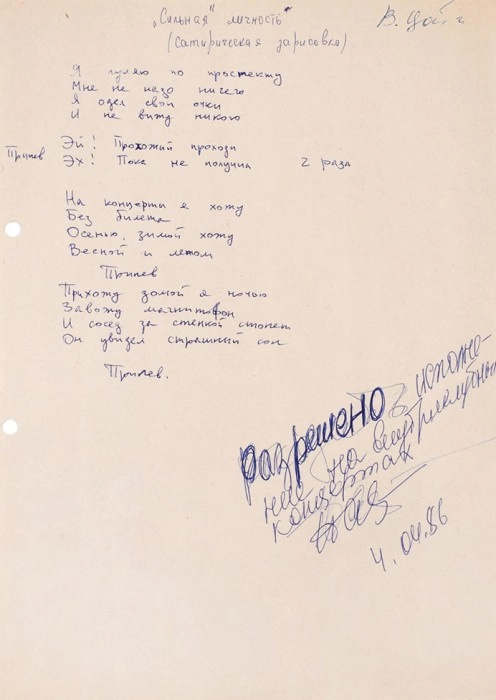 „Сильная" личность
В. Цой
(сатирическая зарисовка)
Я гуляю по проспекту
Мне не надо ничего
Я одел свои очки
И не вижу никого
Эй! Прохожий проходи
Припев Эх! Пока не получил 2 раза
На концерты я хожу
Без билета
Осенью, зимой хожу
Весной и летом
Припев
Прихожу домой я ночью
Завожу магнитофон
И сосед за стенкой стонет
Он увидел страшный сон
Припев.
разрешено исполне-
ние на внутриклубных
концертах
4.04.86